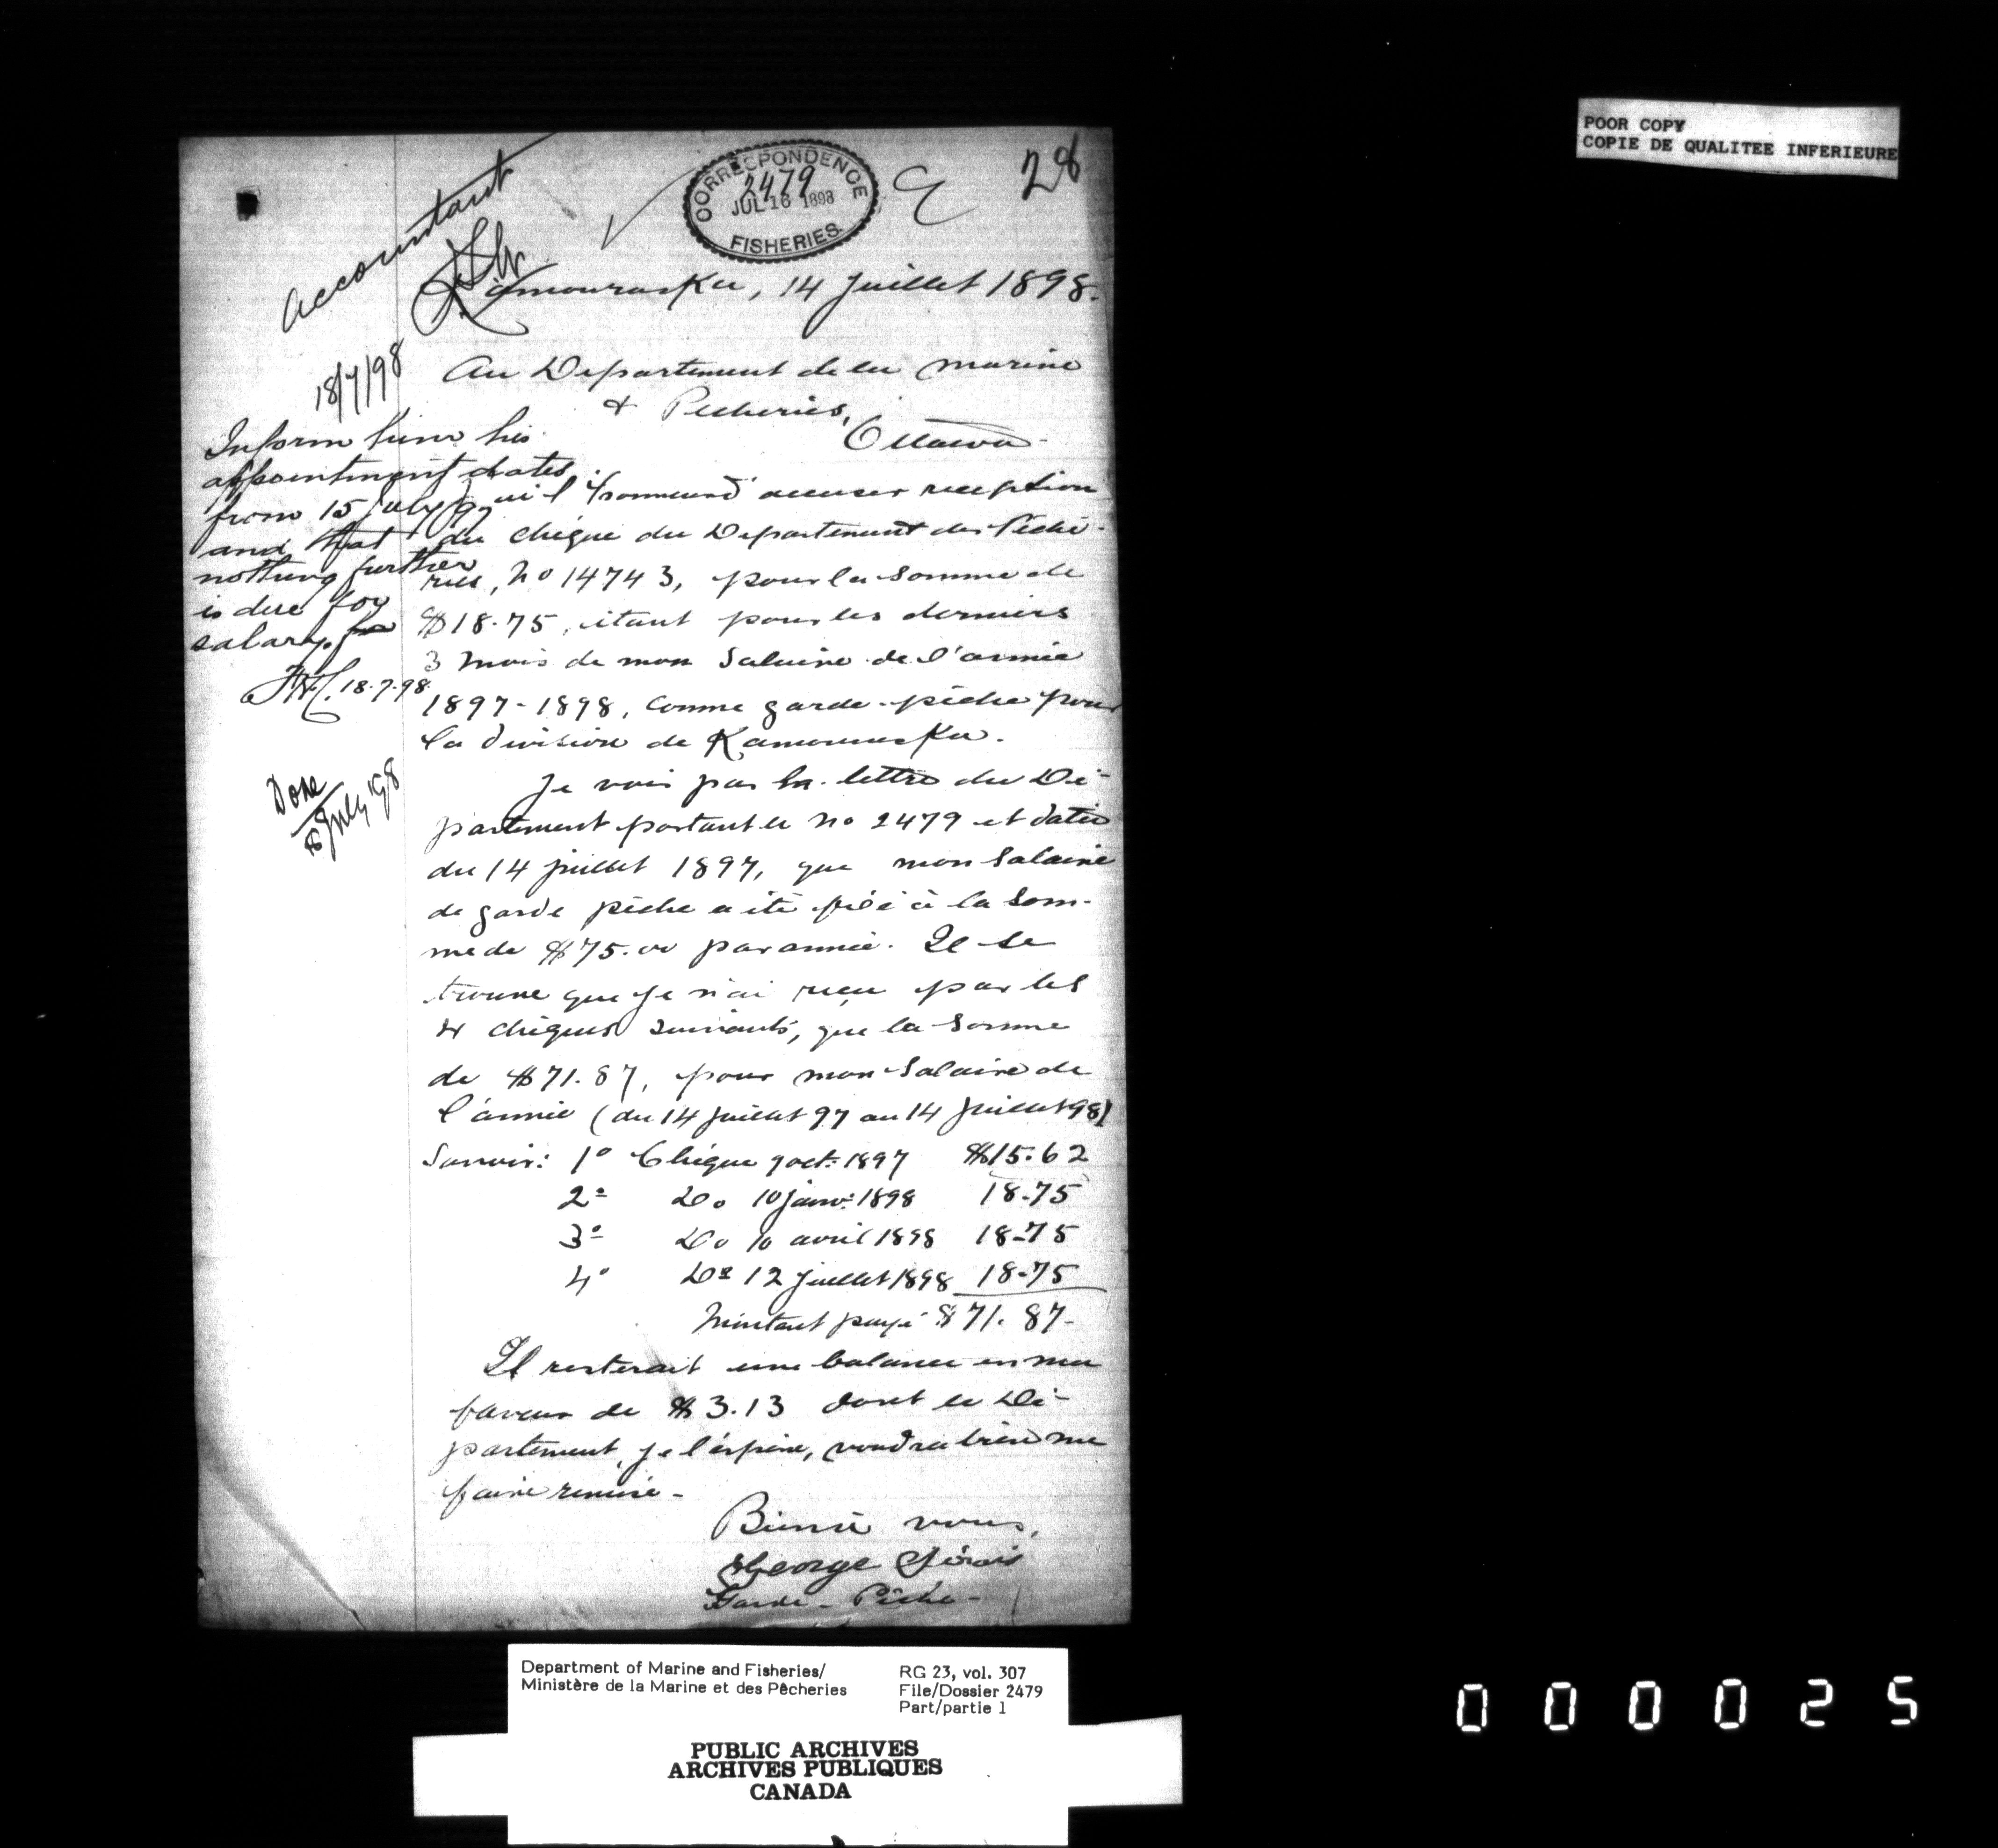 POOR COPY
COPIE DE QUALITEE INFERIEURE
28
CORRESPONDENCE
2479
JUL 16 1898
FISHERIES
Accountant
Kamouraska, 14 Juillet 1898.
18/7/98
Au Departement de la marine
& Pecheries,
Ottawa-
Inform him his
appointment dates
from 15 July/97
and that
nothing further
is due for
salary.
18.7.98
Done
18 July 1898
accuser reception
du chèque du Departement des Pêche-
ries, No 14743, pour la somme de
$18.75, étant pour les derniers
3 mois de mon Salaire de l'année
1897-1898, comme garde-pêche pour
la division de Kamouraska.
Je vois par la lettre du Dé-
partement portant le No 2479 et datée
du 14 juillet 1897, que mon Salaire
de garde pêche a été fixé à la Som-
me de $75.00 par année. Il se
trouve que je n'ai reçu par les
4 chèques suivants, que la Somme
de $71.87, pour mon Salaire de
l'année (du 14 Juillet 97 au 14 Juillet 98)
Savoir: 1º Chèque 9 oct: 1897 $15.62
2º Do 10 janv: 1898 18-75
3º Do 10 avril 1898 18-75
4º Do 12 Juillet 1898 18-75
Montant payé $71.87-
Il resterait une balance en ma
faveur de $3.13 dont le Dé-
partement, je l'éspère, voudra bien me
faire remise-
Bien à vous,
George
Garde-Pêche-
Department of Marine and Fisheries/
Ministère de la Marine et des Pêcheries
RG 23, vol. 307
File/Dossier 2479
Part/partie 1
PUBLIC ARCHIVES
ARCHIVES PUBLIQUES
CANADA
000025